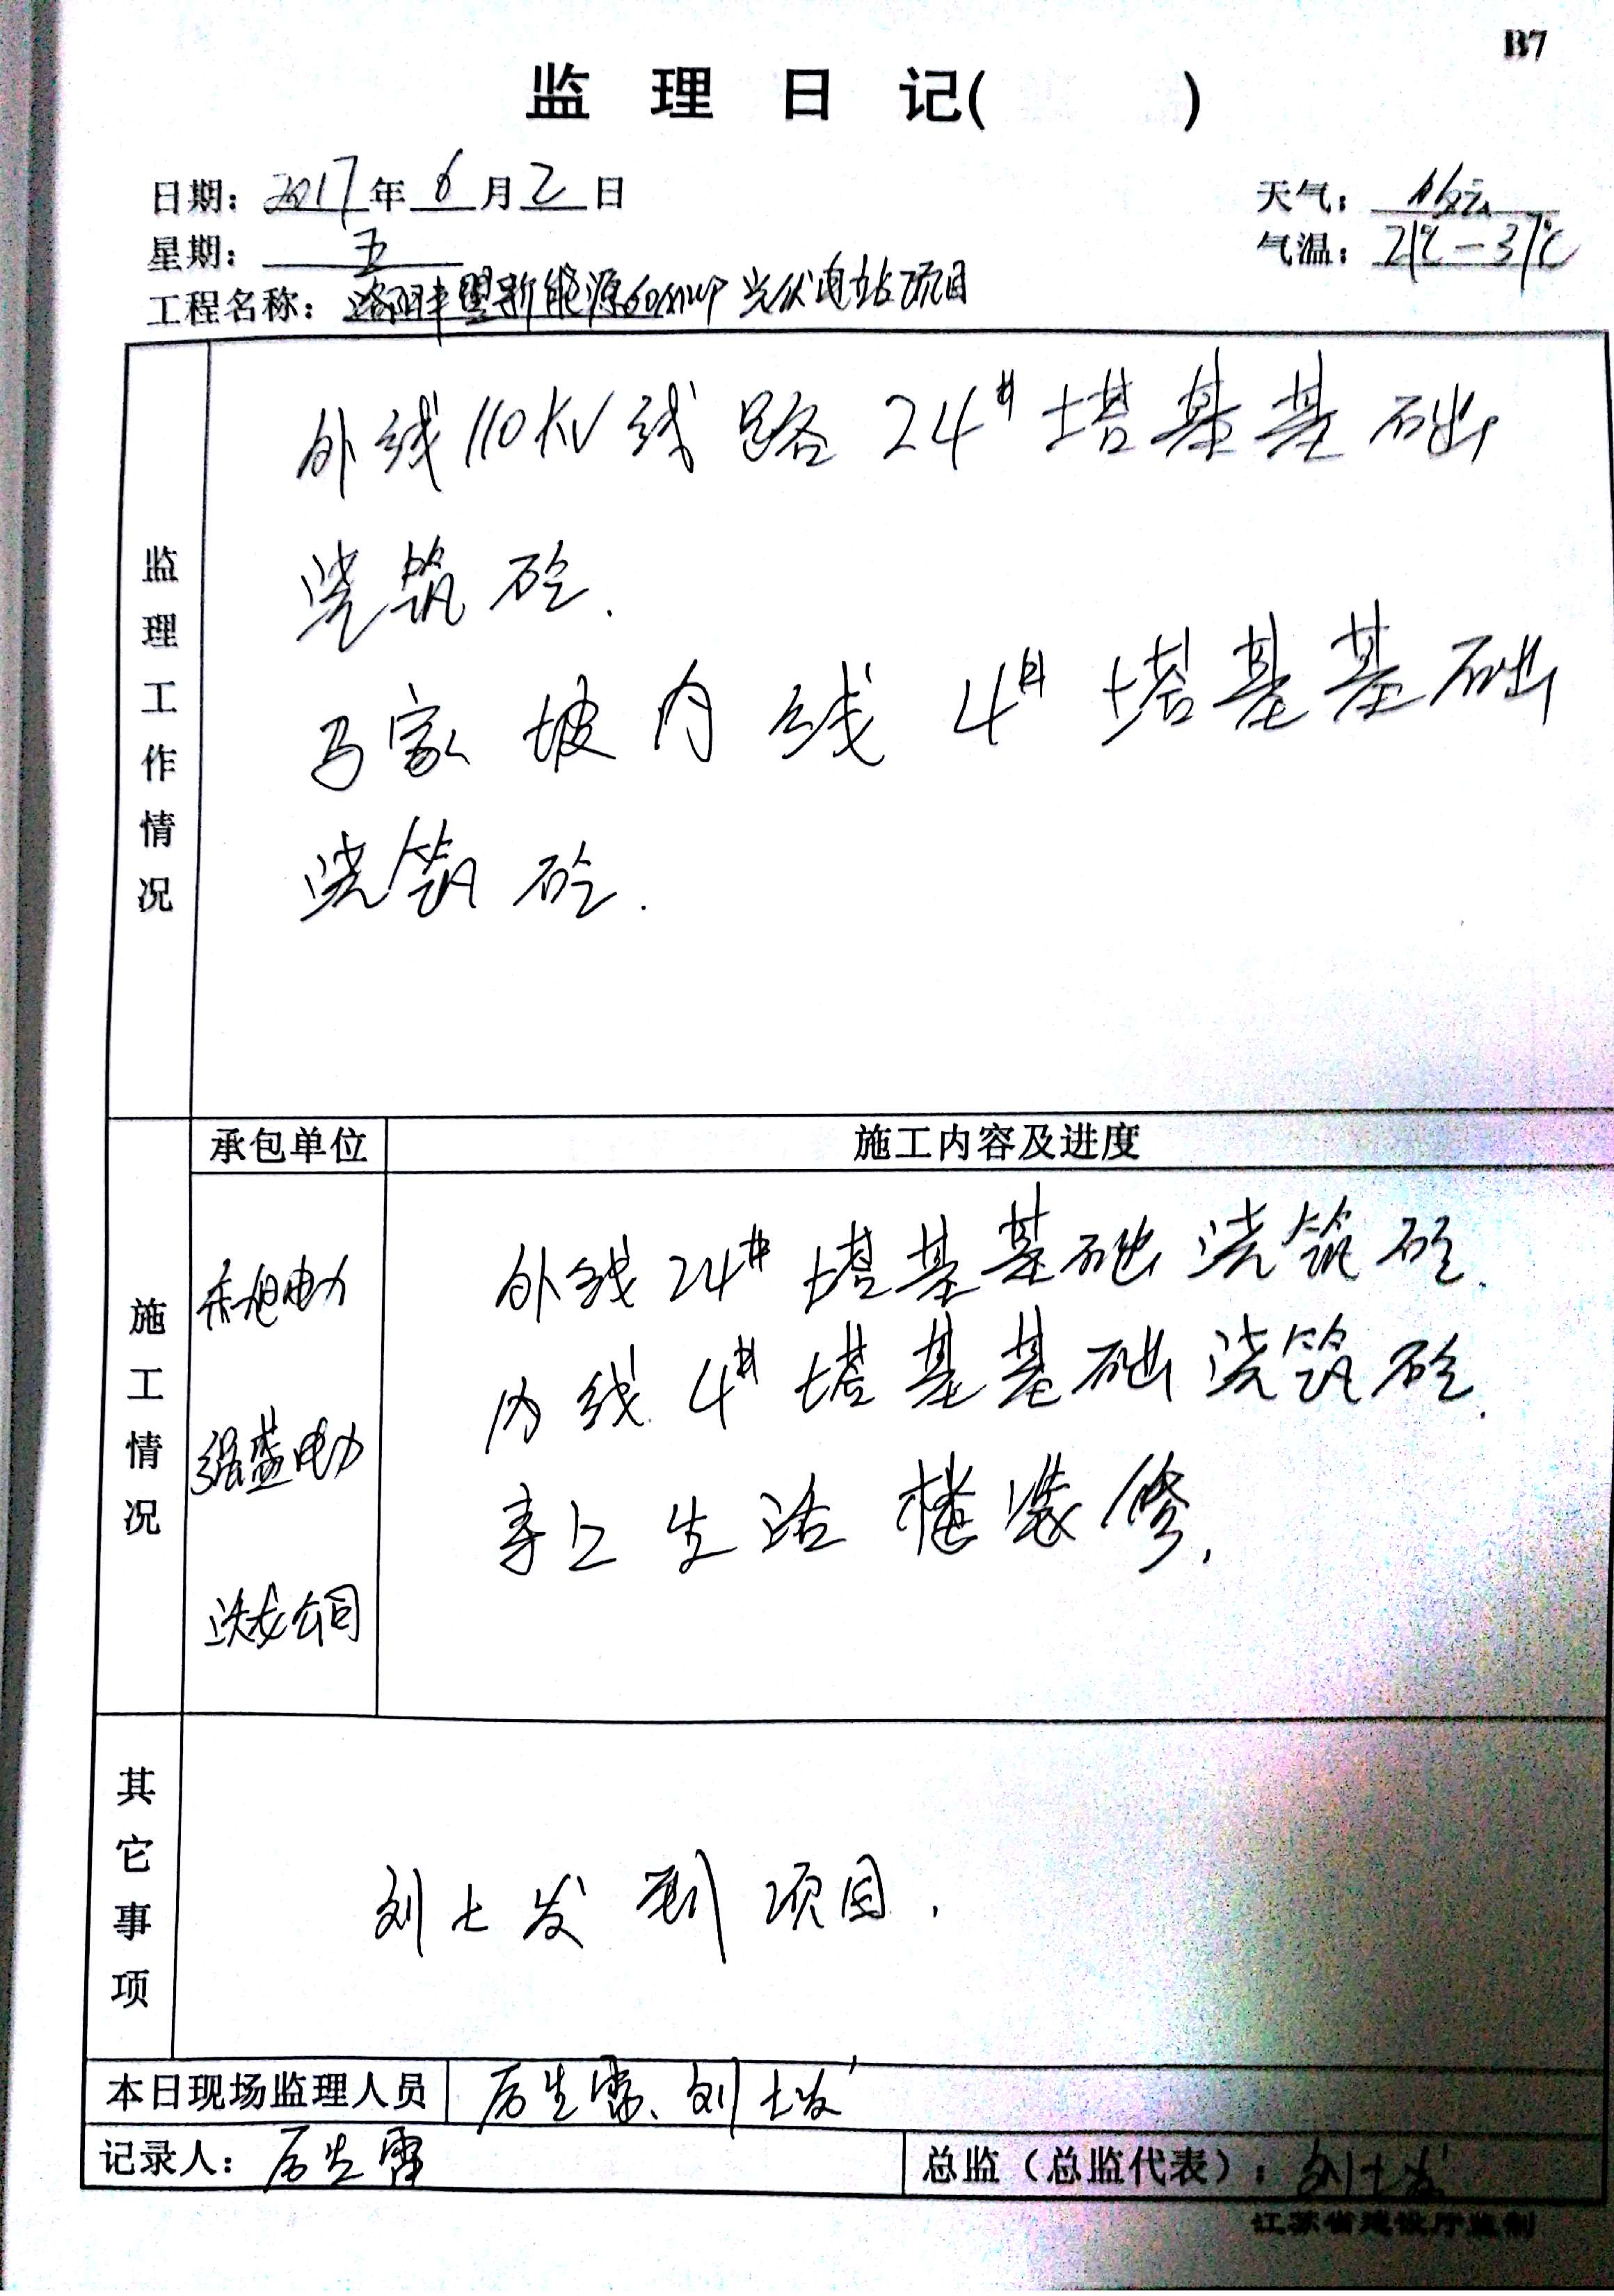 B7
监理日记( )
日期：2017年6月2日
天气：多云
星期：五
气温：21℃-37℃
工程名称：洛阳丰盟新能源60MWP光伏电站项目
监理工作情况
外线110KV线路24#塔基基础
浇筑砼.
马家坡内线4#塔基基础
浇筑砼.
施工情况
承包单位
施工内容及进度
电力
外线24#塔基基础浇筑砼.
强盛电力
内线4#塔基基础浇筑砼.
公司
寺上生活楼装修.
其它事项
刘士发到项目.
本日现场监理人员
厉生雷、刘士发
记录人：厉生雷
总监（总监代表）：刘士发
江苏省建设厅监制